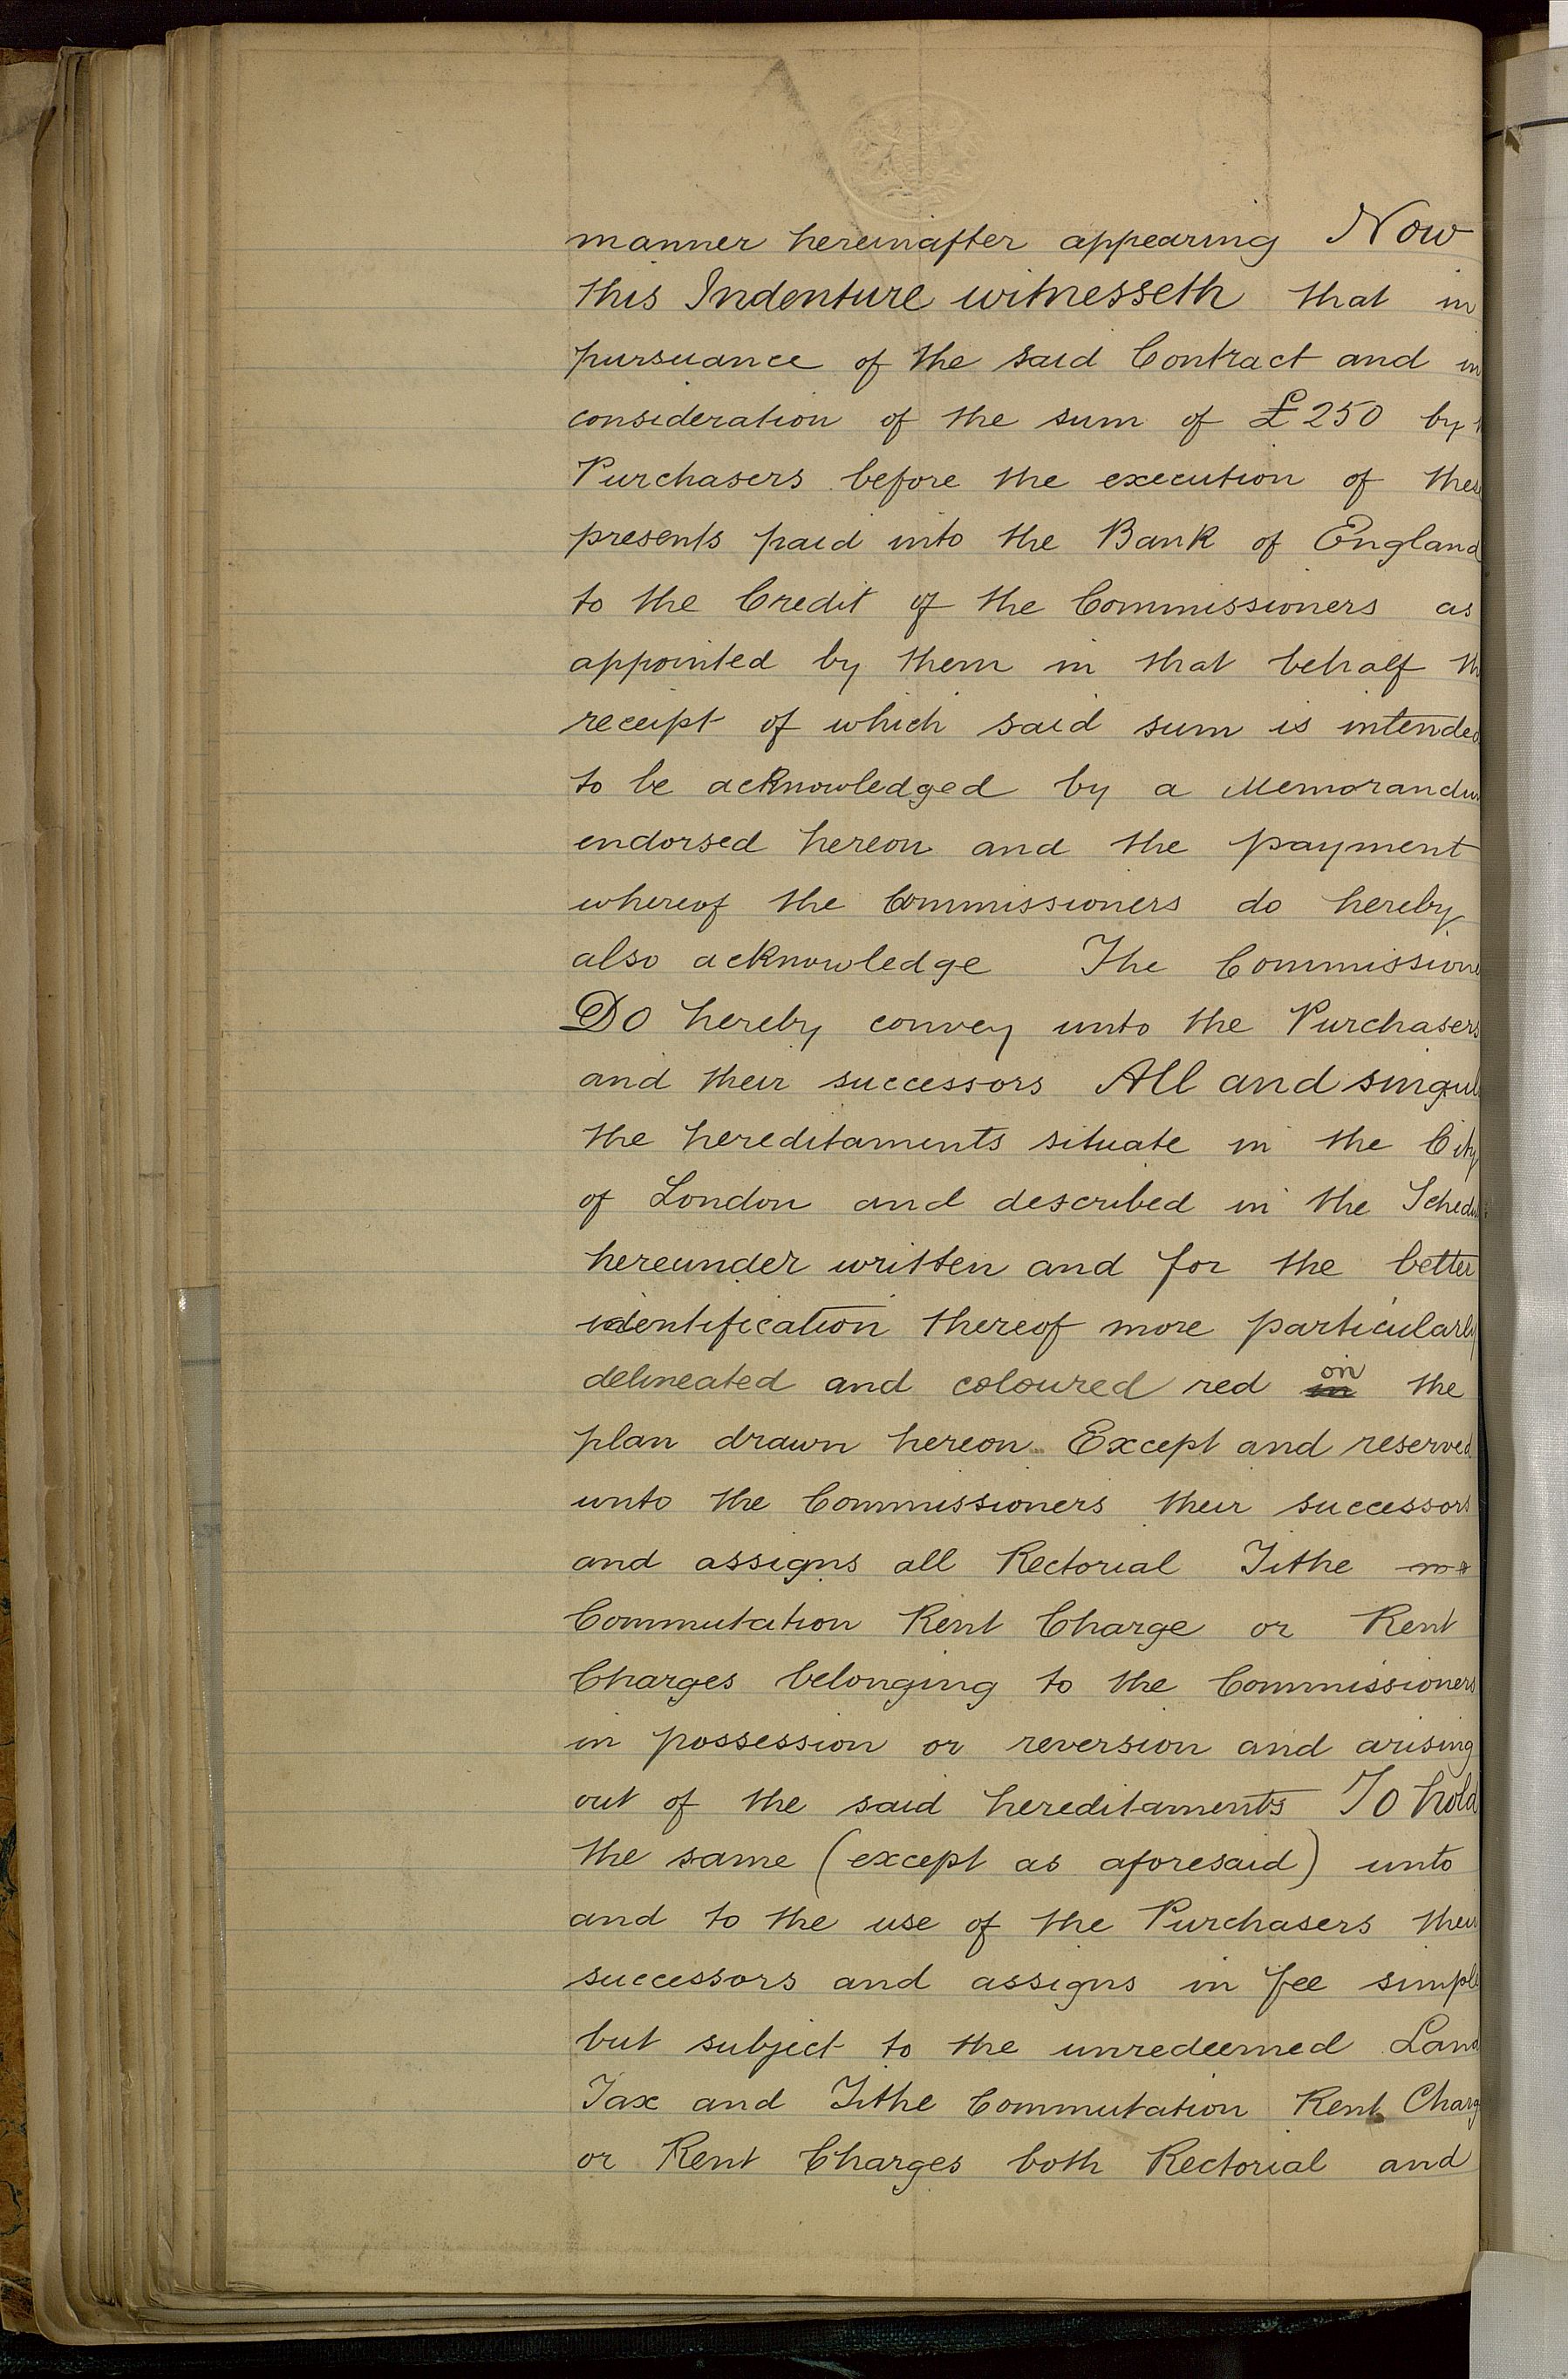 manner hereinafter appearing Now
this Indenture witnesseth that in
pursuance of the said Contract and in
consideration of the sum of £250 by
Purchasers before the execution of these
presents paid into the Bank of England
to the Credit of the Commissioners as
appointed by them in that behalf th
receipt of which said sum is intended
to be acknowledged by a Memorandu
endorsed hereon and the payment
whereof the Commissioners do hereby
also acknowledge The Commissione
Do hereby convey unto the Purchasers
and their successors All and singul
the hereditaments situate in the City
of London and described in the Schedu
hereunder written and for the better
identification thereof more particularly
delineated and coloured red in on the
plan drawn hereon Except and reserved
unto the Commissioners their successors
and assigns all Rectorial Tithe
Commutation Rent Charge or Rent
Charges belonging to the Commissioners
in possession or reversion and arising
out of the said hereditaments To hold
the same (except as aforesaid) unto
and to the use of the Purchasers their
successors and assigns in fee simple
but subject to the unredeemed Land
Tax and Tithe Commutation Rent Charg
or Rent Charges both Rectorial and